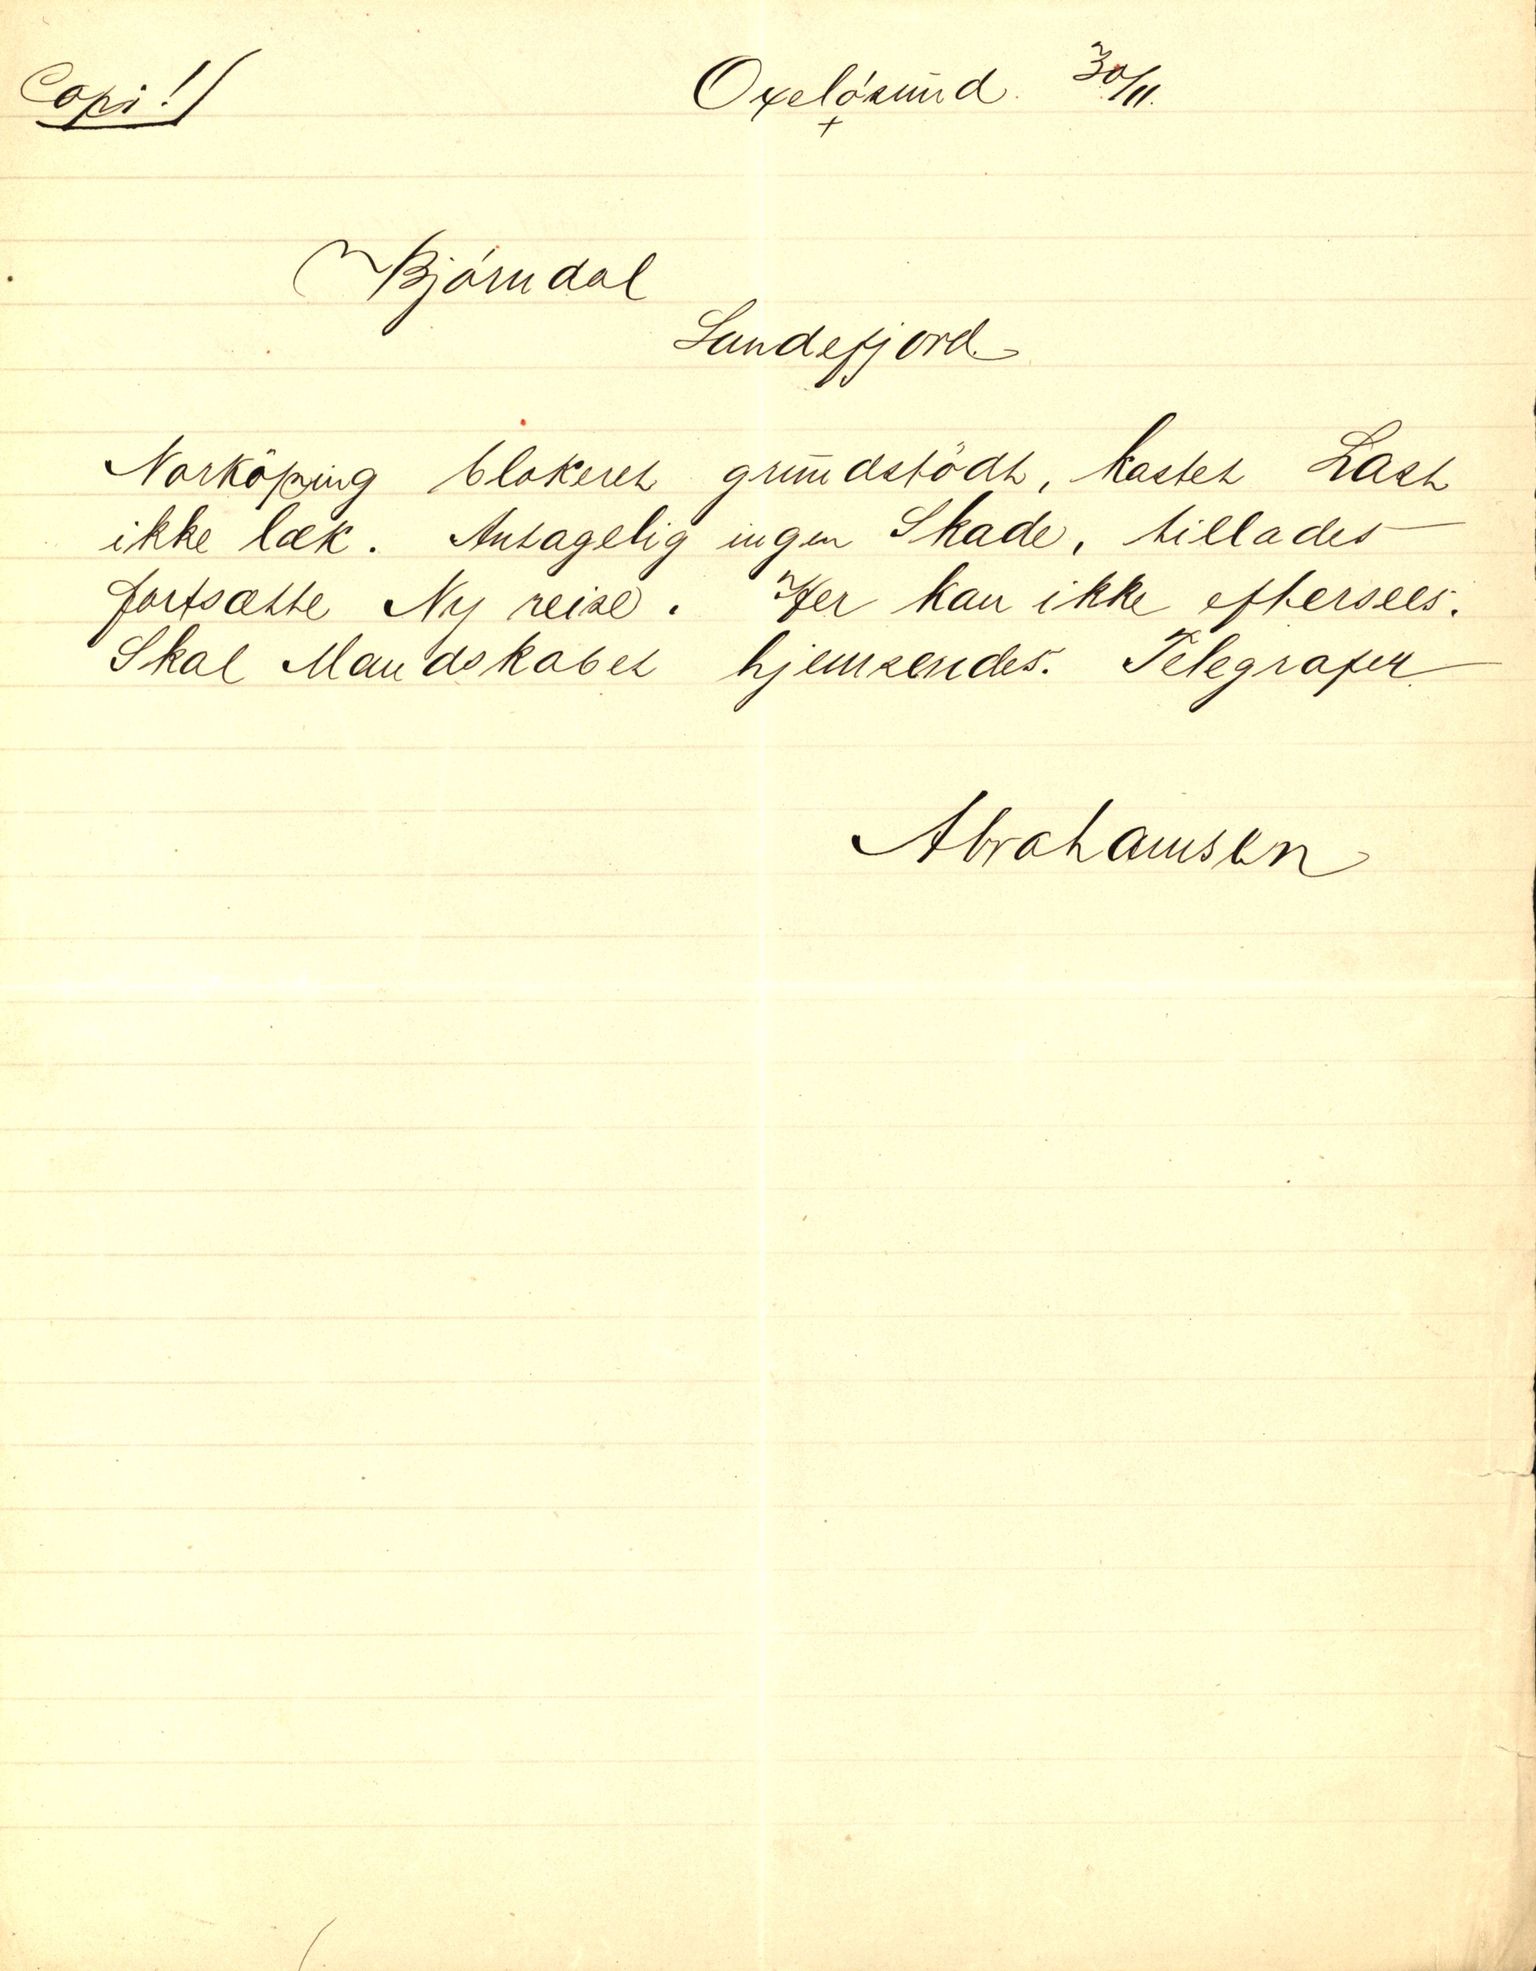 Copi!
Oxelösund 30/11.
Björndal
Sandefjord
Norköping blokeret grundstödt, kastet Last
ikke læk. Antagelig ingen Skade, tillades
fortsætte Ny reise. Her kan ikke eftersees.
Skal Mandskabet hjemsendes. Telegrafer
Abrahamsen